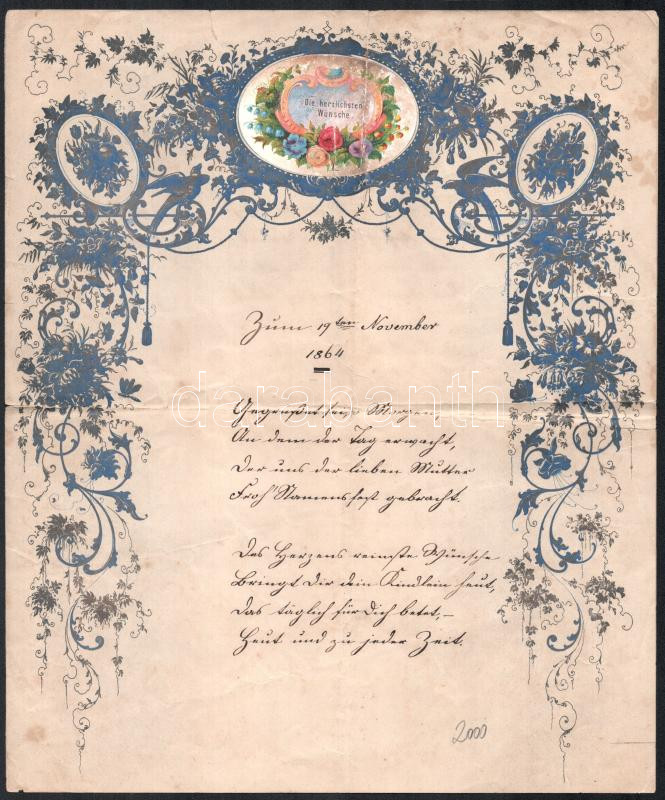 Die herzlichsten
Wünsche.
Zum 19ten November
1864
Gegrüßet sei Morgen,
An dem der Tag erwacht,
Der uns der lieben Mutter
Froh' Namensfest gebracht.
Des Herzens reinste Wünsche
Bringt Dir dein Kindlein heut,
Das täglich für Dich betet,–
Heut und zu jeder Zeit.
darabanth.com
2000